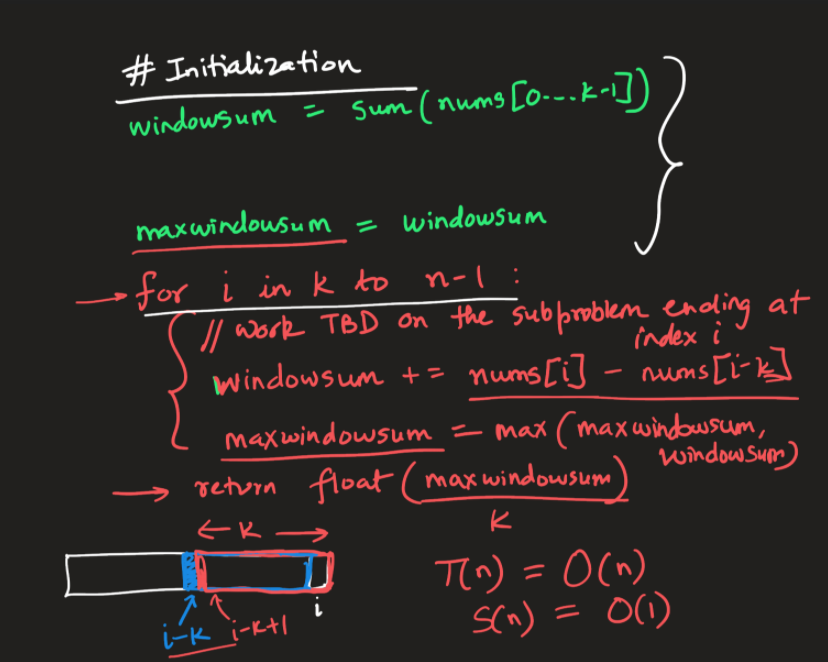 # Initialization
windowsum = sum(nums[0...k-1])
maxwindowsum = windowsum
→ for i in k to n-1 :
// work TBD on the subproblem ending at
index i
windowsum += nums[i] - nums[i-k]
maxwindowsum = max(maxwindowsum,
windowsum)
→ return float(maxwindowsum)
k
← k →
T(n) = O(n)
i
S(n) = O(1)
i-k i-k+1